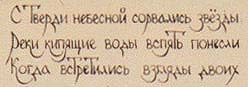 С Тверди небесной сорвались звёзды
Реки кипящие воды вспять понесли
Когда встретились взгляды двоих